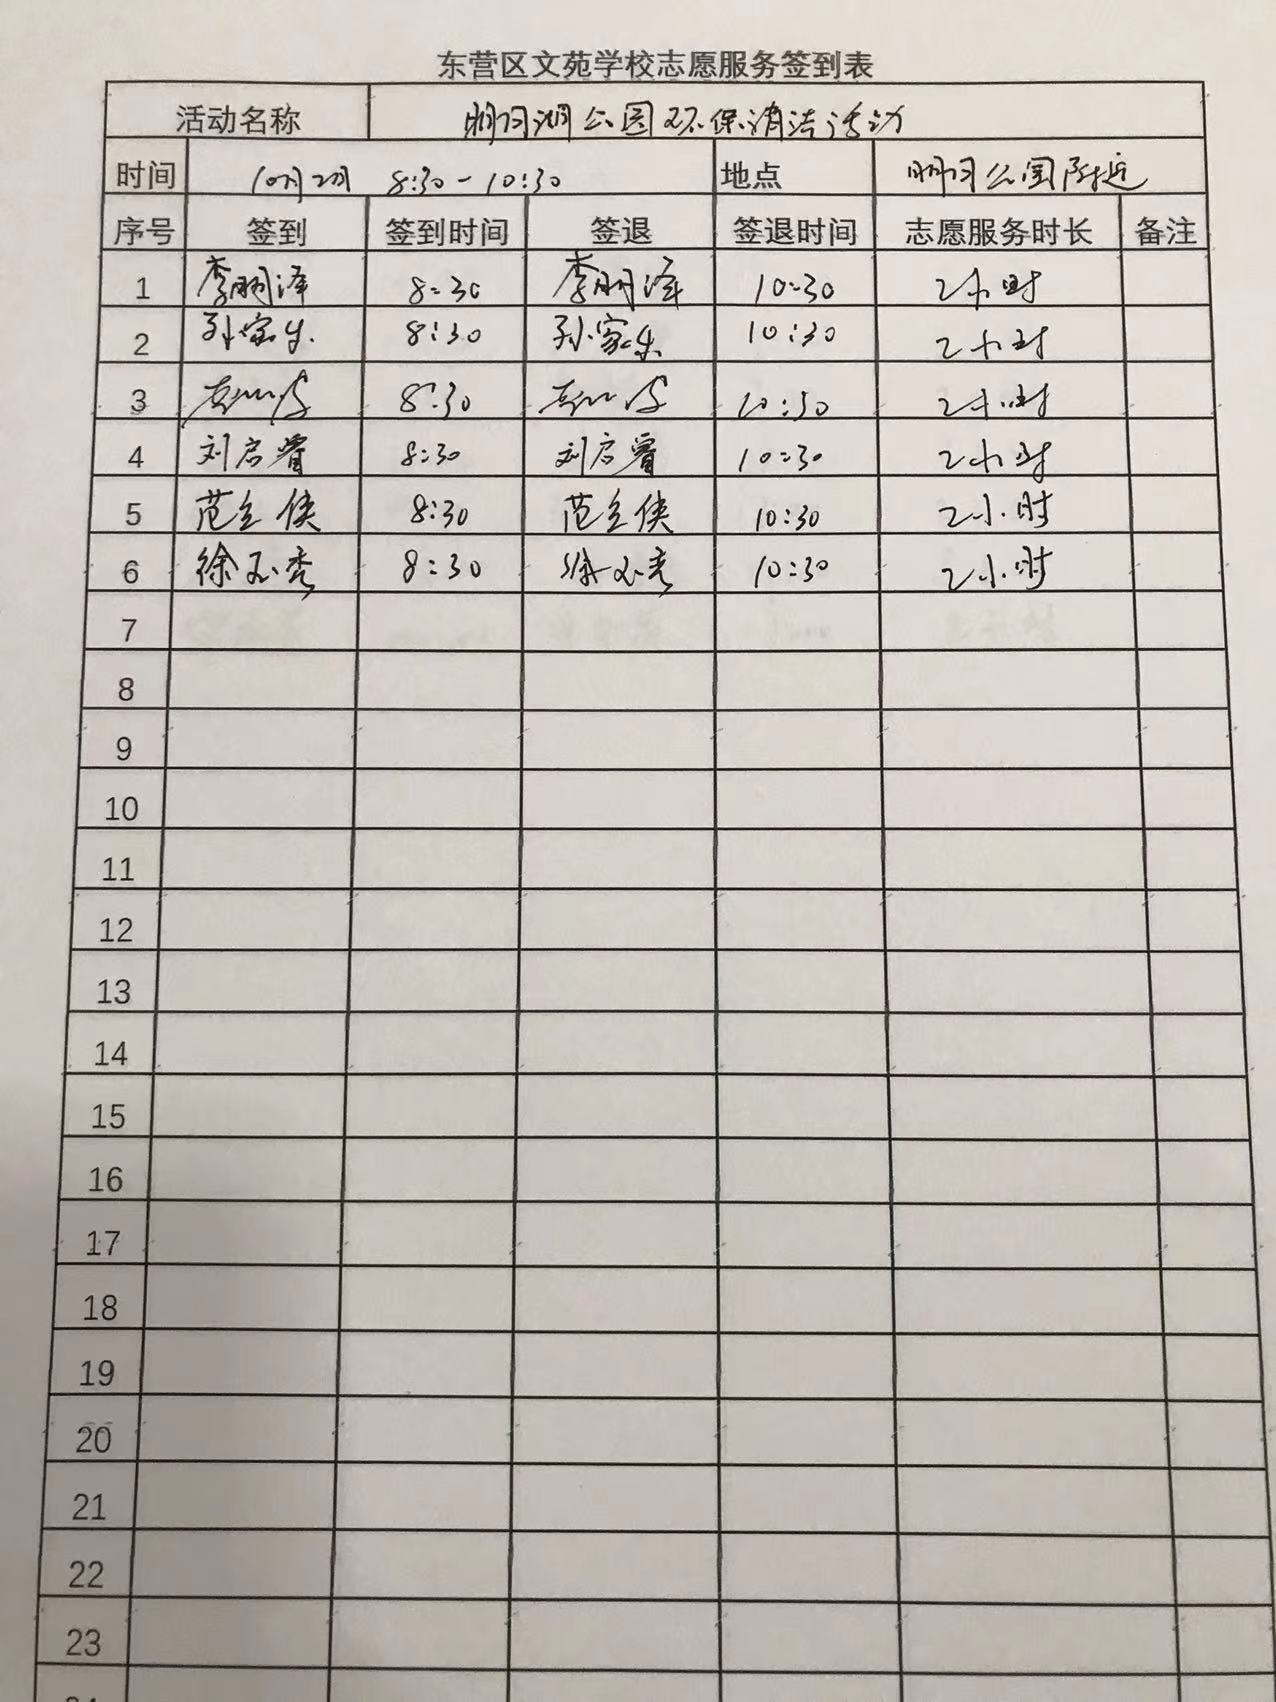 东营区文苑学校志愿服务签到表
活动名称 明月湖公园环保清洁活动
时间 10月2日 8:30-10:30 地点 明月公园附近
序号 签到 签到时间 签退 签退时间 志愿服务时长 备注
1 李明泽 8:30 李明泽 10:30 2小时
2 孙家乐 8:30 孙家乐 10:30 2小时
3 8:30 10:30 2小时
4 刘启睿 8:30 刘启睿 10:30 2小时
5 范立侠 8:30 范立侠 10:30 2小时
6 徐玉秀 8:30 徐玉秀 10:30 2小时
7
8
9
10
11
12
13
14
15
16
17
18
19
20
21
22
23
24